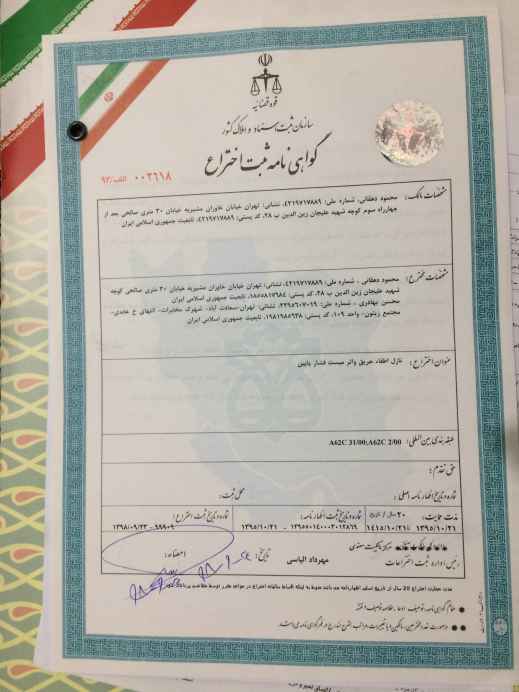 قوه قضائیه
سازمان ثبت اسناد و املاک کشور
گواهی نامه ثبت اختراع
۰۰۲۶۱۸ الف/۹۳
مشخصات مالک: محمود دهقانی، شماره ملی: ۴۲۱۹۷۱۷۸۸۹، نشانی: تهران خیابان خاوران مشیریه خیابان ۳۰ متری صالحی بعد از
چهارراه سوم کوچه شهید علیجان زین الدین پ ۲۸، کد پستی: ۴۲۱۹۷۱۷۸۸۹، تابعیت جمهوری اسلامی ایران
مشخصات مخترع: محمود دهقانی ، شماره ملی: ۴۲۱۹۷۱۷۸۸۹، نشانی: تهران خیابان خاوران مشیریه خیابان ۳۰ متری صالحی کوچه
شهید علیجان زین الدین پ ۲۸، کد پستی: ۱۸۵۵۸۱۷۹۸۴، تابعیت جمهوری اسلامی ایران
محسن بهادری ، شماره ملی: ۲۲۹۵۶۰۷۰۱۹، نشانی: تهران-سعادت آباد- شهرک مخابرات- انتهای خ عابدی-
مجتمع زیتون- واحد ۱۰۹، کد پستی: ۱۹۸۱۹۸۵۹۳۸، تابعیت جمهوری اسلامی ایران
عنوان اختراع: نازل اطفاء حریق واتر میست فشار پایین
طبقه بندی بین المللی: A62C 31/00;A62C 2/00
حق تقدم:
شماره و تاریخ اظهارنامه اصلی:
محل ثبت:
مدت حمایت: ۲۰ سال از تاریخ
۱۳۹۵/۱۰/۲۱ تا ۱۴۱۵/۱۰/۲۱
شماره و تاریخ ثبت اظهارنامه:
۱۳۹۵۵۰۱۴۰۰۰۳۰۱۲۸۶۹ - ۱۳۹۵/۱۰/۲۱
شماره و تاریخ ثبت اختراع:
۹۹۹۰۹ - ۱۳۹۸/۰۹/۲۳
مرکز مالکیت معنوی
رئیس اداره ثبت اختراعات
مهرداد الیاسی
تاریخ:
امضاء:
مدت حمایت اختراع 20 سال از تاریخ تسلیم اظهارنامه می باشد منوط به اینکه اقساط سالانه اختراع در مواعد مقرر توسط
ضمائم گواهی نامه: توصیف، ادعا، خلاصه توصیف، نقشه